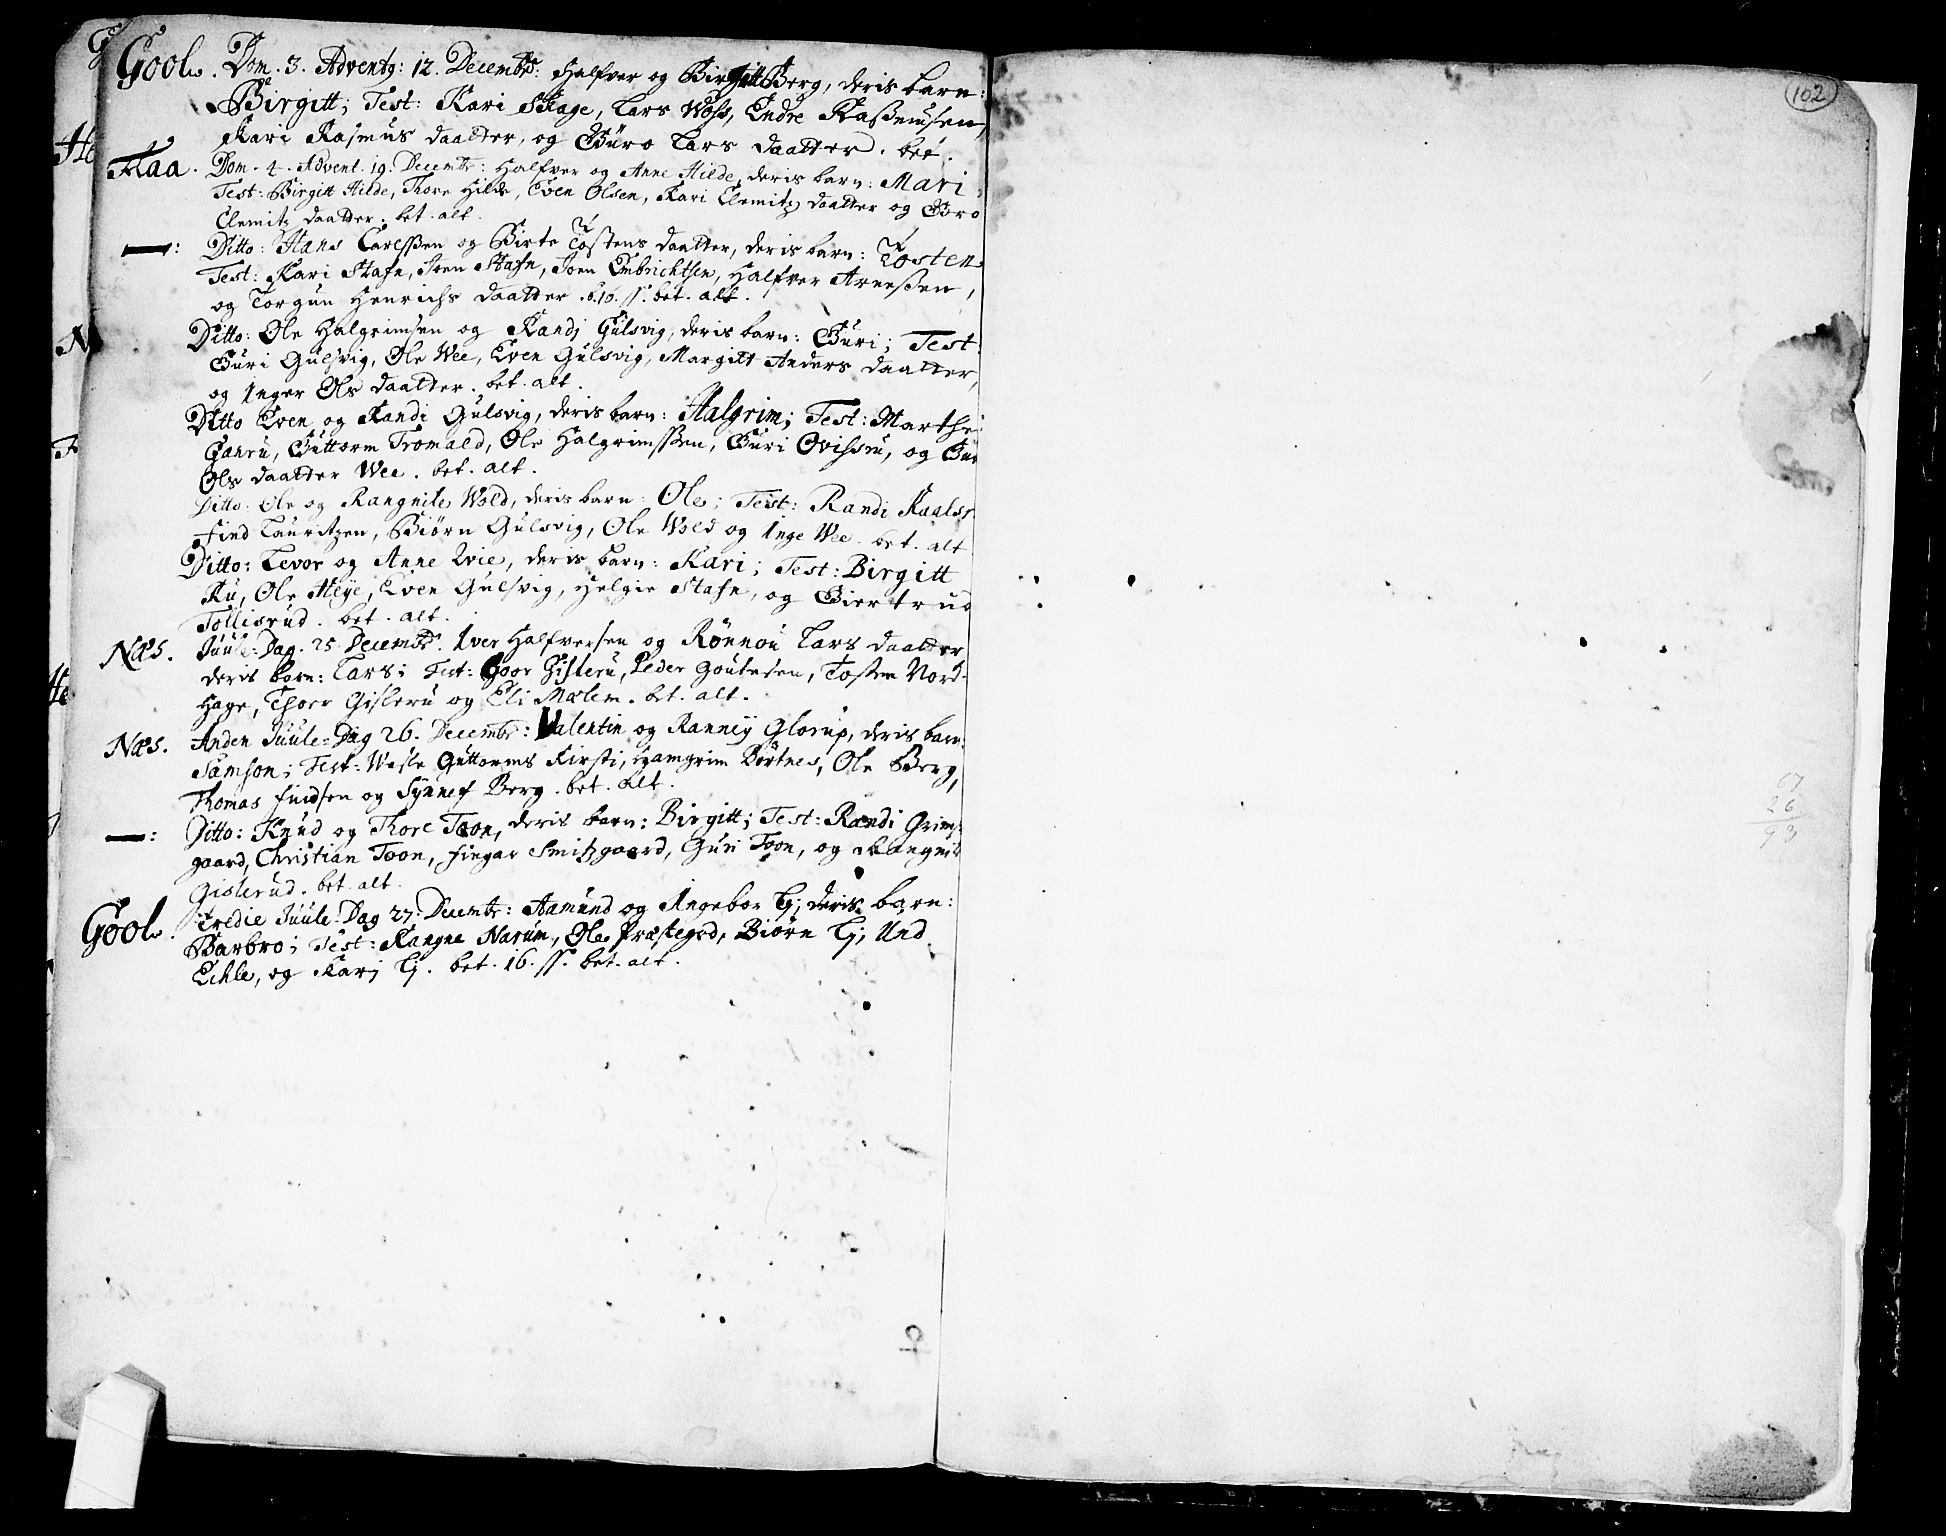 102
Gool. Dom. 3. Adventg: 12. Decembr: Halfver og Birgitt Berg, deris barn:
Birgitt; Test: Kari Skage, Lars Woss, Endre Raßmusen,
Kari Rasmus daatter, og Guro Lars daatter. bet.
Flaa. Dom. 4. Advent. 19. Decembr: Halfver og Anne Hilde, deris barn: Mari;
Test: Birgitt Hilde, Thore Hilde, Even Olsen, Kari Clemitz daatter og Gro
Clemitz daatter. bet. alt.
—: Ditto: Hans Carlsßen og Birte Tostens daatter, deris barn: Tosten
Test: Kari Stafn, Joen Stafn, Joen Embrichtsen, Halfver Arneßen,
og Torgun Henrichs daatter. b. 16. ss. bet. alt.
Ditto: Ole Halgrimsen og Randj Gulsvig, deris barn: Guri; Test:
Guri Gulsvig, Ole Wee, Even Gulsvig, Margitt Anders daatter,
og Inger Ols daatter. bet. alt.
Ditto Even og Randi Gulsvig, deris barn: Halgrim; Test: Marthe
Guttorm Tromald, Ole Halgrimsßen, Guri og
Ols daatter Wee. bet. alt.
Ditto: Ole og Rangnile Wold, deris barn: Ole; Test: Randi
find Lauritzen, Biörn Gulsvig, Ole Wold og Inge Wee. bet. alt
Ditto: Levor og Anne deris barn: Kari; Test: Birgitt
Ru, Ole Heye, Even Gulsvig, Helgie Stafn, og Giertrud
Tollisrud. bet. alt.
Næs. Juule-Dag. 25. Decembr. Iver Halfversen og Rönnou Lars daatter
deris barn: Lars; Test: Goor Gisleru, Peder Goutesen, Tosten Nord-
hage, Thoer Gisleru og Eli Mælem. bet. alt.
Næs. Anden Juule-Dag 26. Decembr: Valentin og Ranneÿ Glorup, deris barn:
Samson; Test: Wesle Guttorms Kirsti, Hamgrim Börtnes, Ole Berg,
Thomas og Synnef Berg. bet. alt.
—: Ditto: Knud og Thore Toon, deris barn: Birgitt; Test: Randi Grims-
gaard, Christian Toon, fingar Smitzgaard, Guri Toon, og Rangnil
Gislerud. bet. alt.
Gool. Tredie Juule-Dag 27. Decembr: Aamund og Ingebor Lj, deris barn:
Barbro; Test: Rangne Narum, Ole Præstegrd, Biörn Lj, Und
Echle, og Karj Lj. bet. 16. ss. bet. alt.
67
26
93